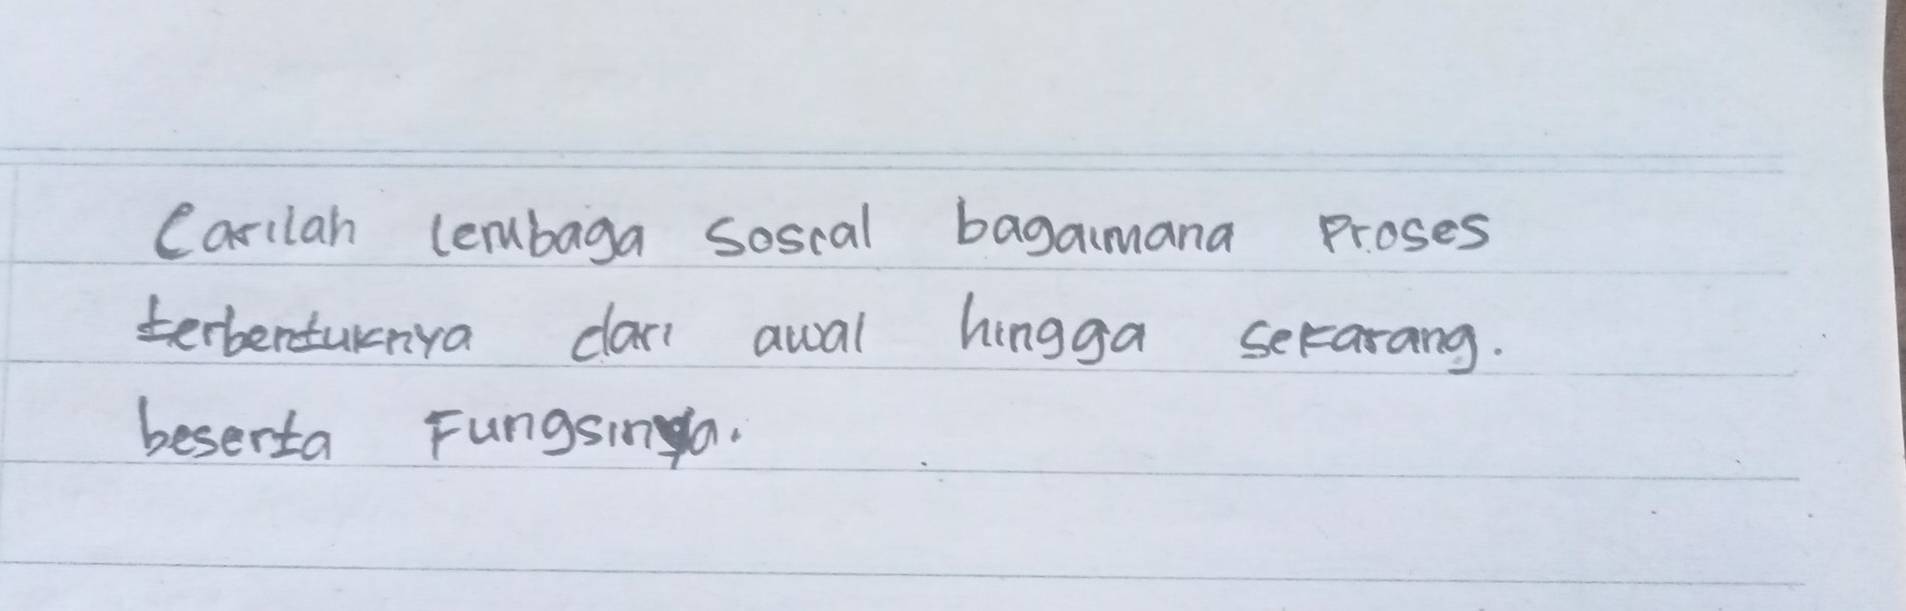 Carilah lembaga sosial bagaimana proses
terbentuknya dari awal hingga sekarang.
beserta Fungsinya.